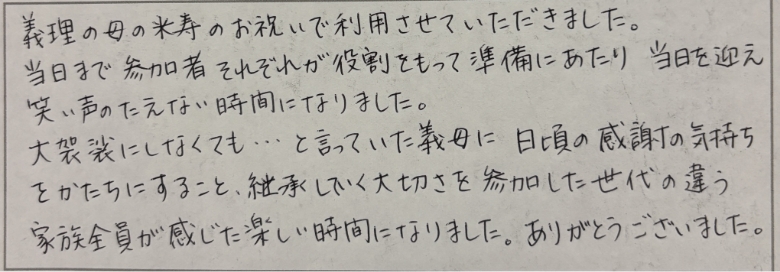 義理の母の米寿のお祝いで利用させていただきました。
当日まで参加者それぞれが役割をもって準備にあたり 当日を迎え
笑い声のたえない時間になりました。
大袈裟にしなくても…と言っていた義母に 日頃の感謝の気持ち
をかたちにすること、継承していく大切さを参加した世代の違う
家族全員が感じた楽しい時間になりました。ありがとうございました。